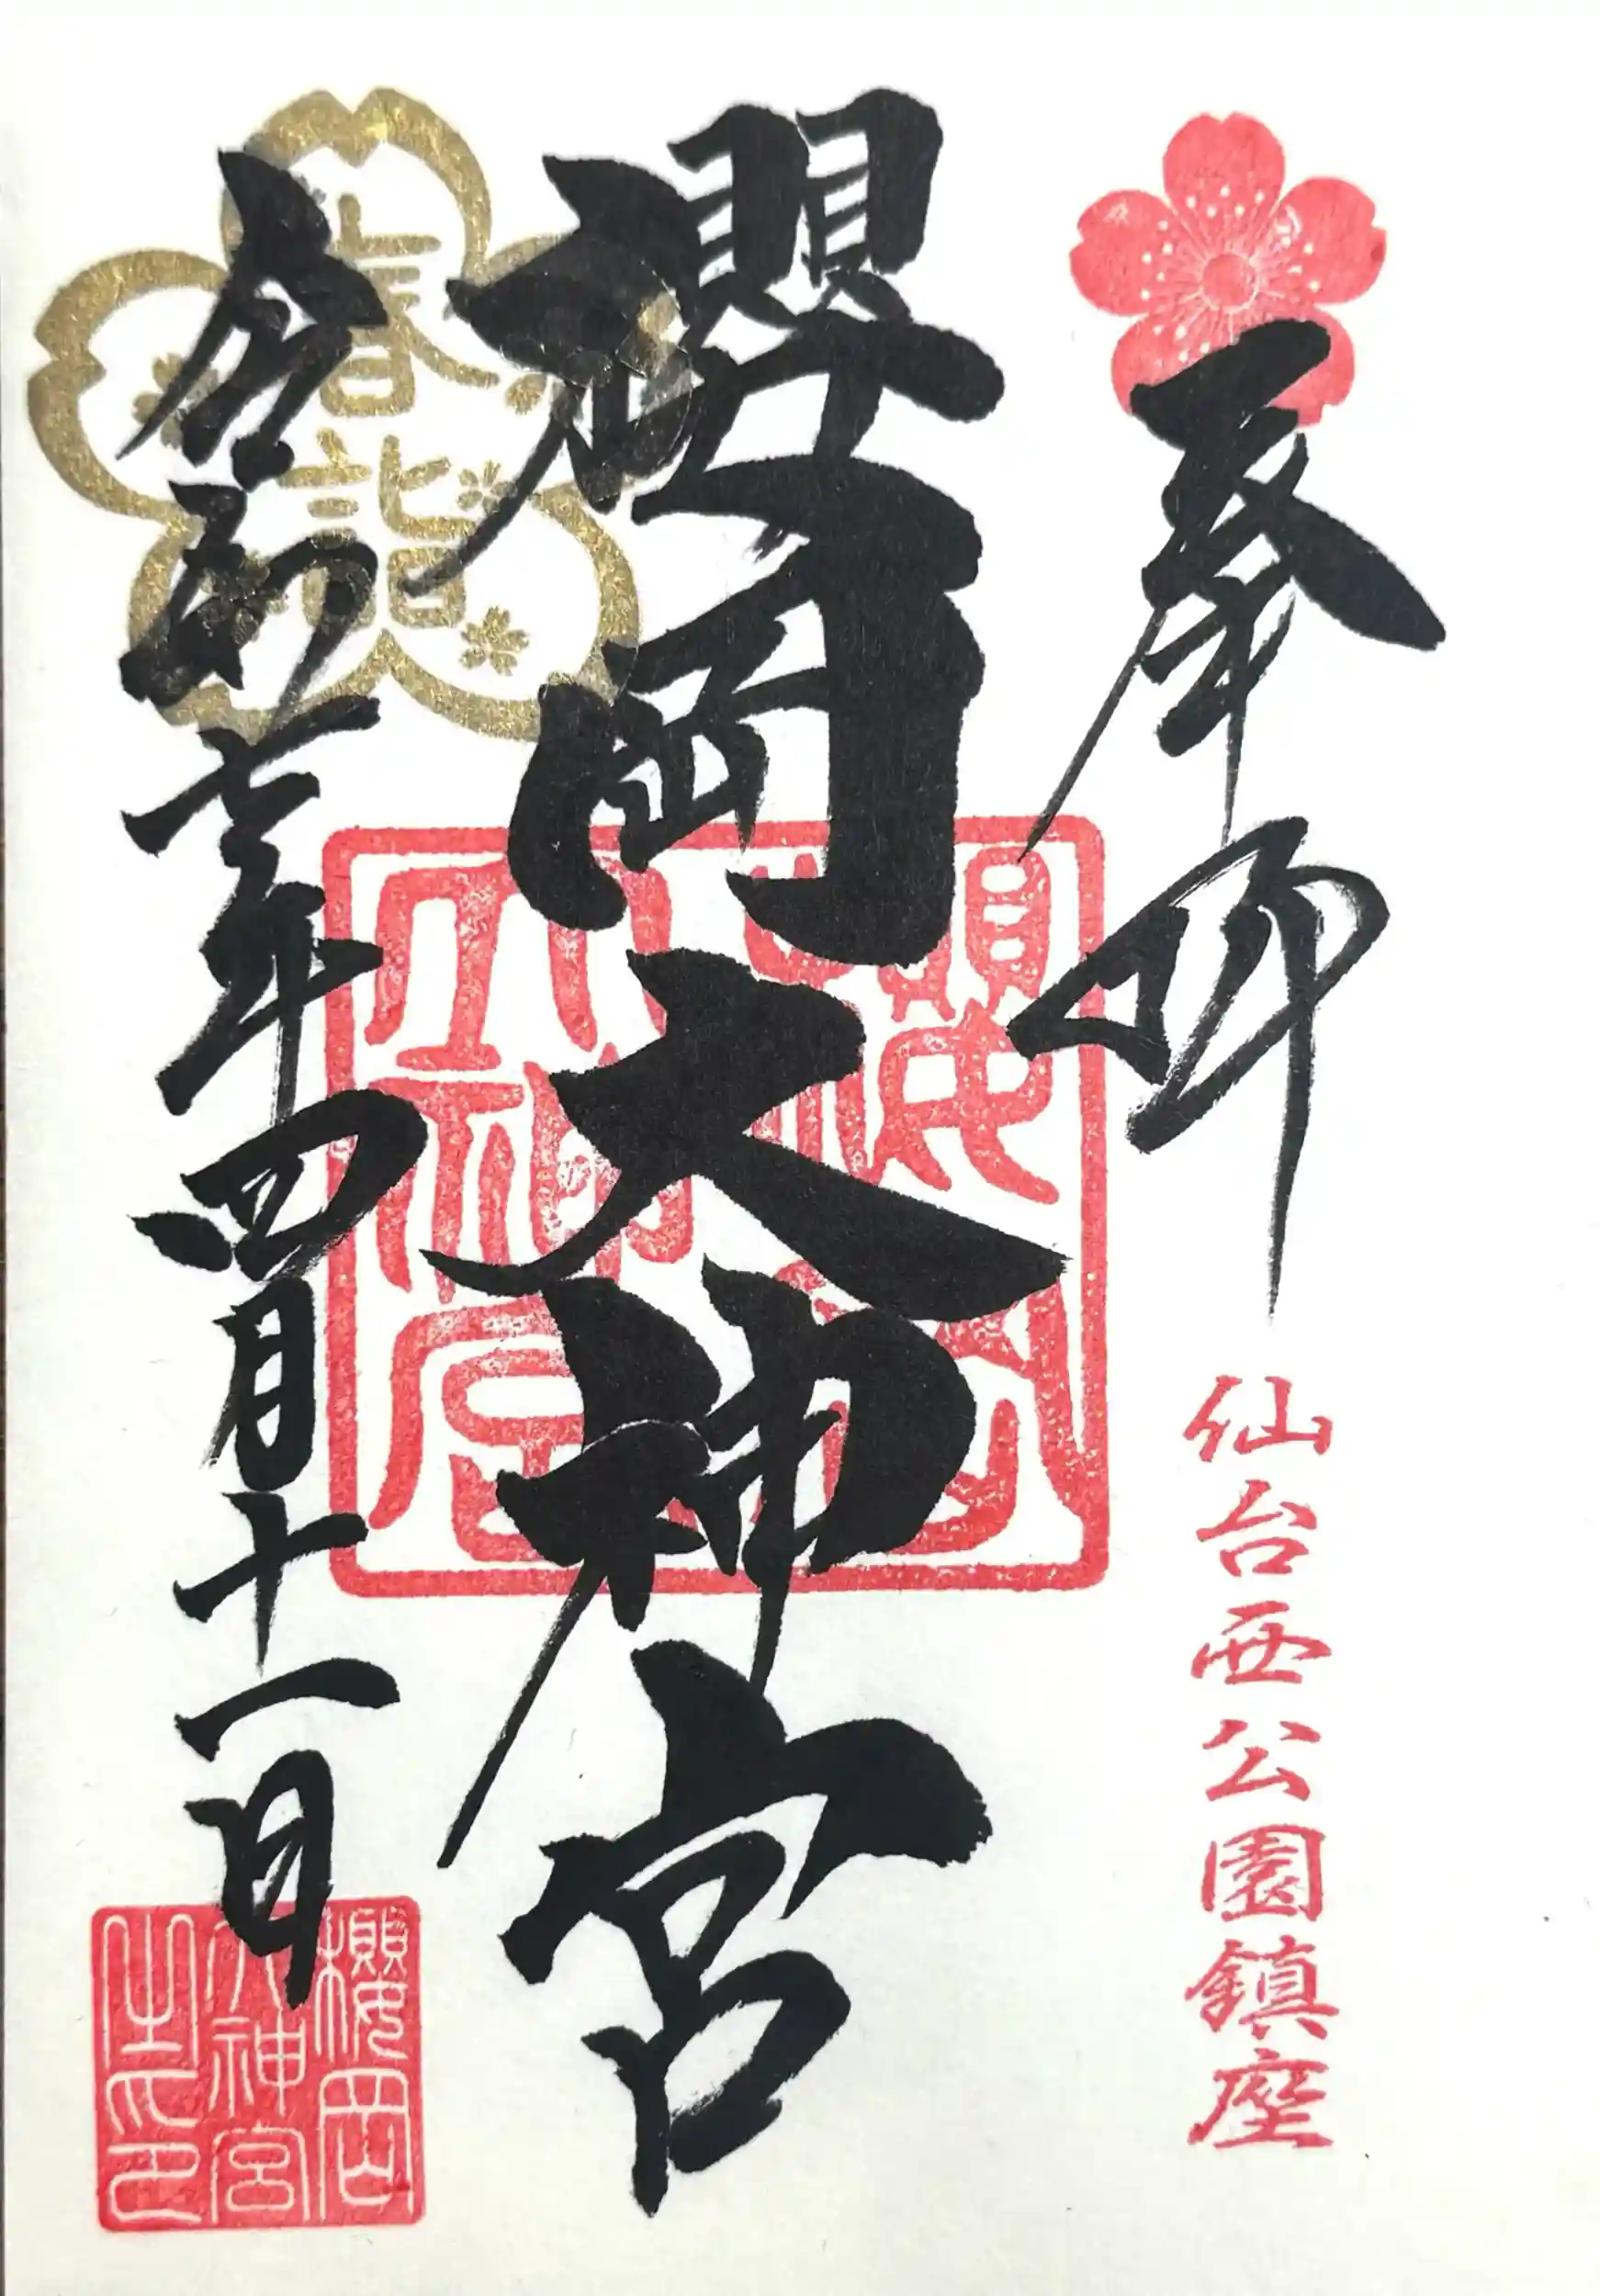 奉拝
仙台西公園鎮座
櫻岡大神宮
櫻岡大神宮
春詣
令和年四月十一日
櫻岡大神宮之印